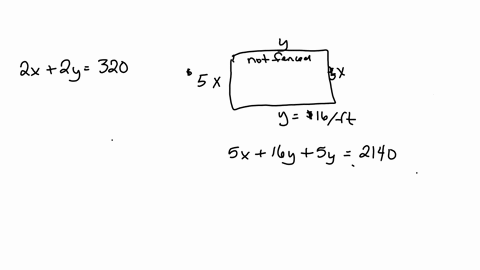 2x + 2y = 320
y
not fenced
$5x
$x
y = $16/ft
5x + 16y + 5y = 2140